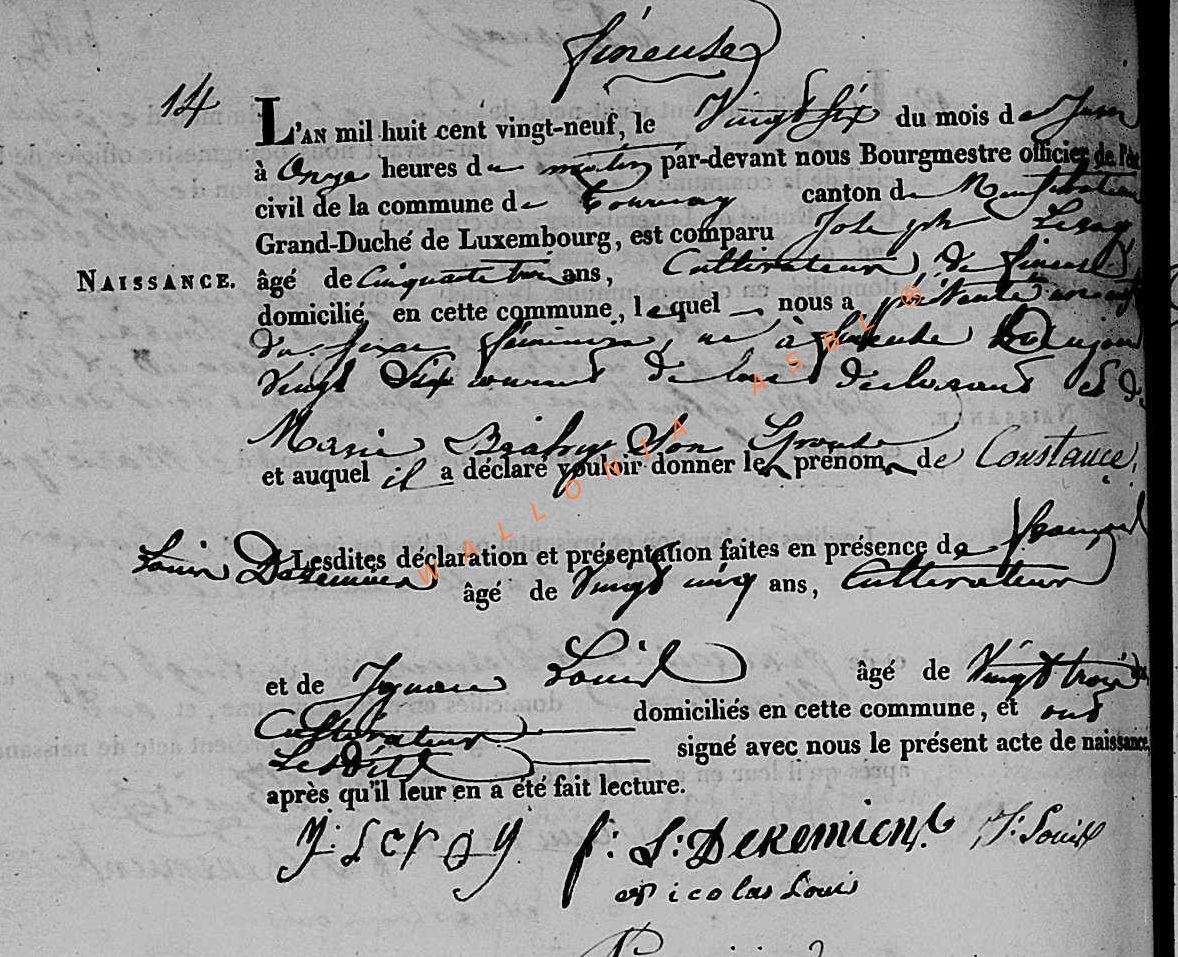 fineuse
14
L'AN mil huit cent vingt-neuf, le Vingt Six du mois de Juin
à Onze heures de matin par-devant nous Bourgmestre officier de l'
civil de la commune de Tournay canton de Neufchateau
Grand-Duché de Luxembourg, est comparu Joseph Leroy
NAISSANCE. âgé de Cinquante trois ans, Cultivateur, de fineuse,
domicilié en cette commune, lequel nous a présenté un enfant
du sexe féminin, né à fineuse
Vingt Six courant de lui déclarant et de
Marie Brahy Son Epouse
et auquel il a déclaré vouloir donner le prénom de Constance,
Lesdites déclaration et présentation faites en présence de françois
Louis Deremiens âgé de Vingt cinq ans, Cultivateur
et de Louis âgé de Vingt trois
Cultivateur domiciliés en cette commune, et ont
Lesdits signé avec nous le présent acte de naissance,
après qu'il leur en a été fait lecture.
J: Leroy f: L: Deremiens J: Louis
nicolas Louis
WALLONIA ASBL ®